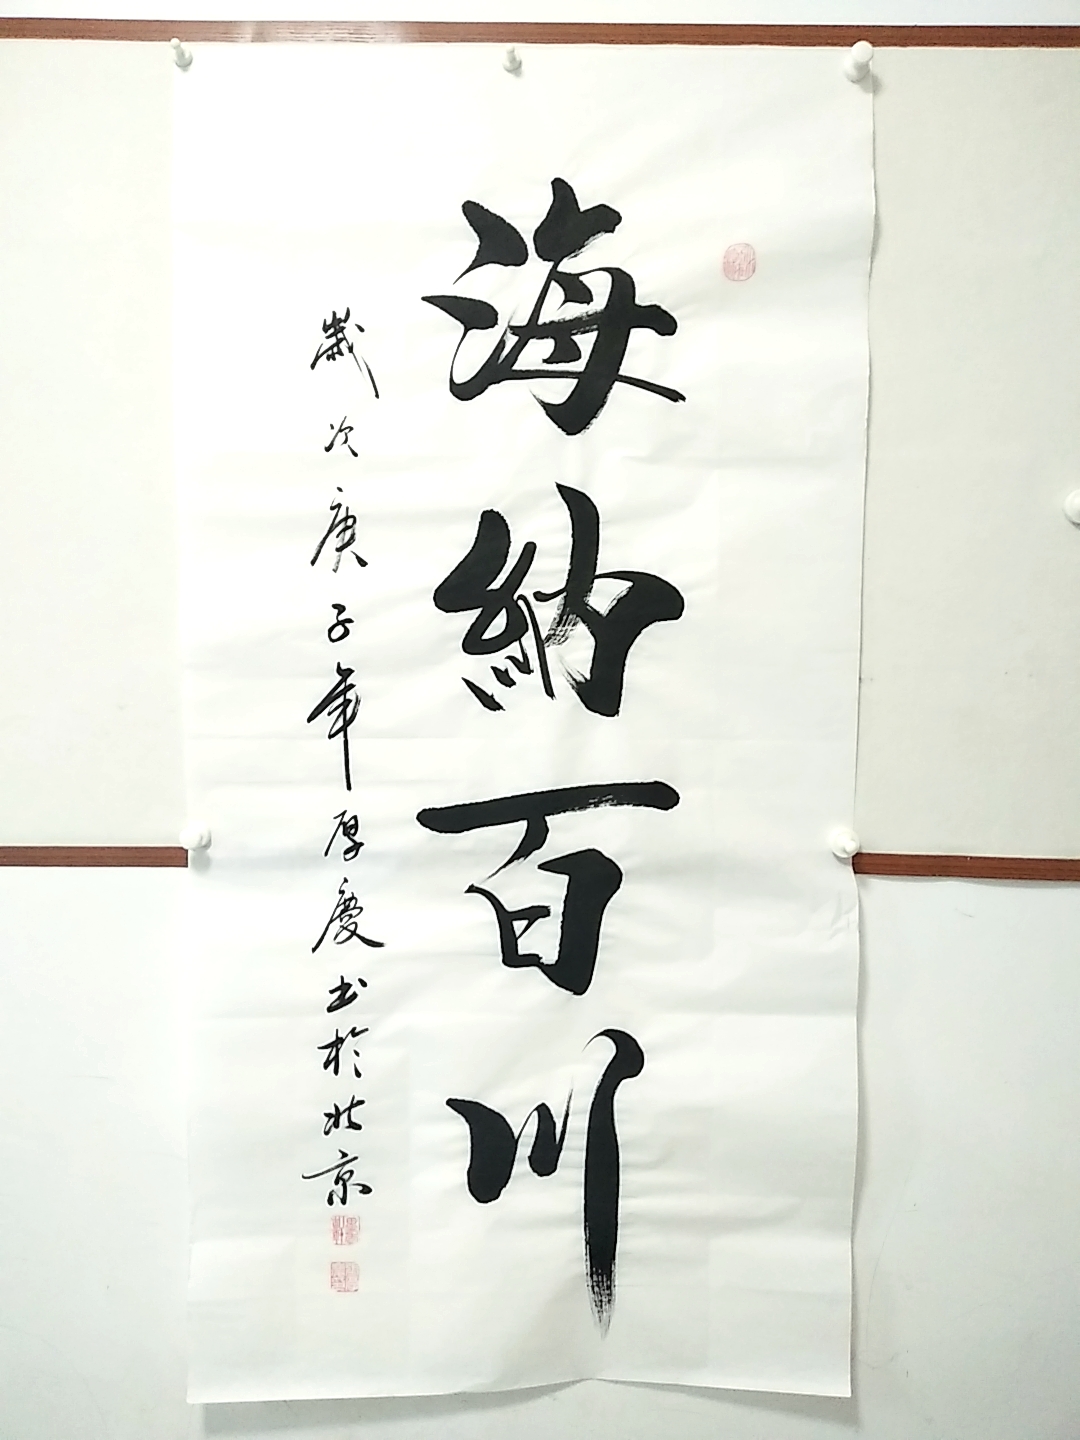 海納百川
歲次庚子年厚慶书於北京